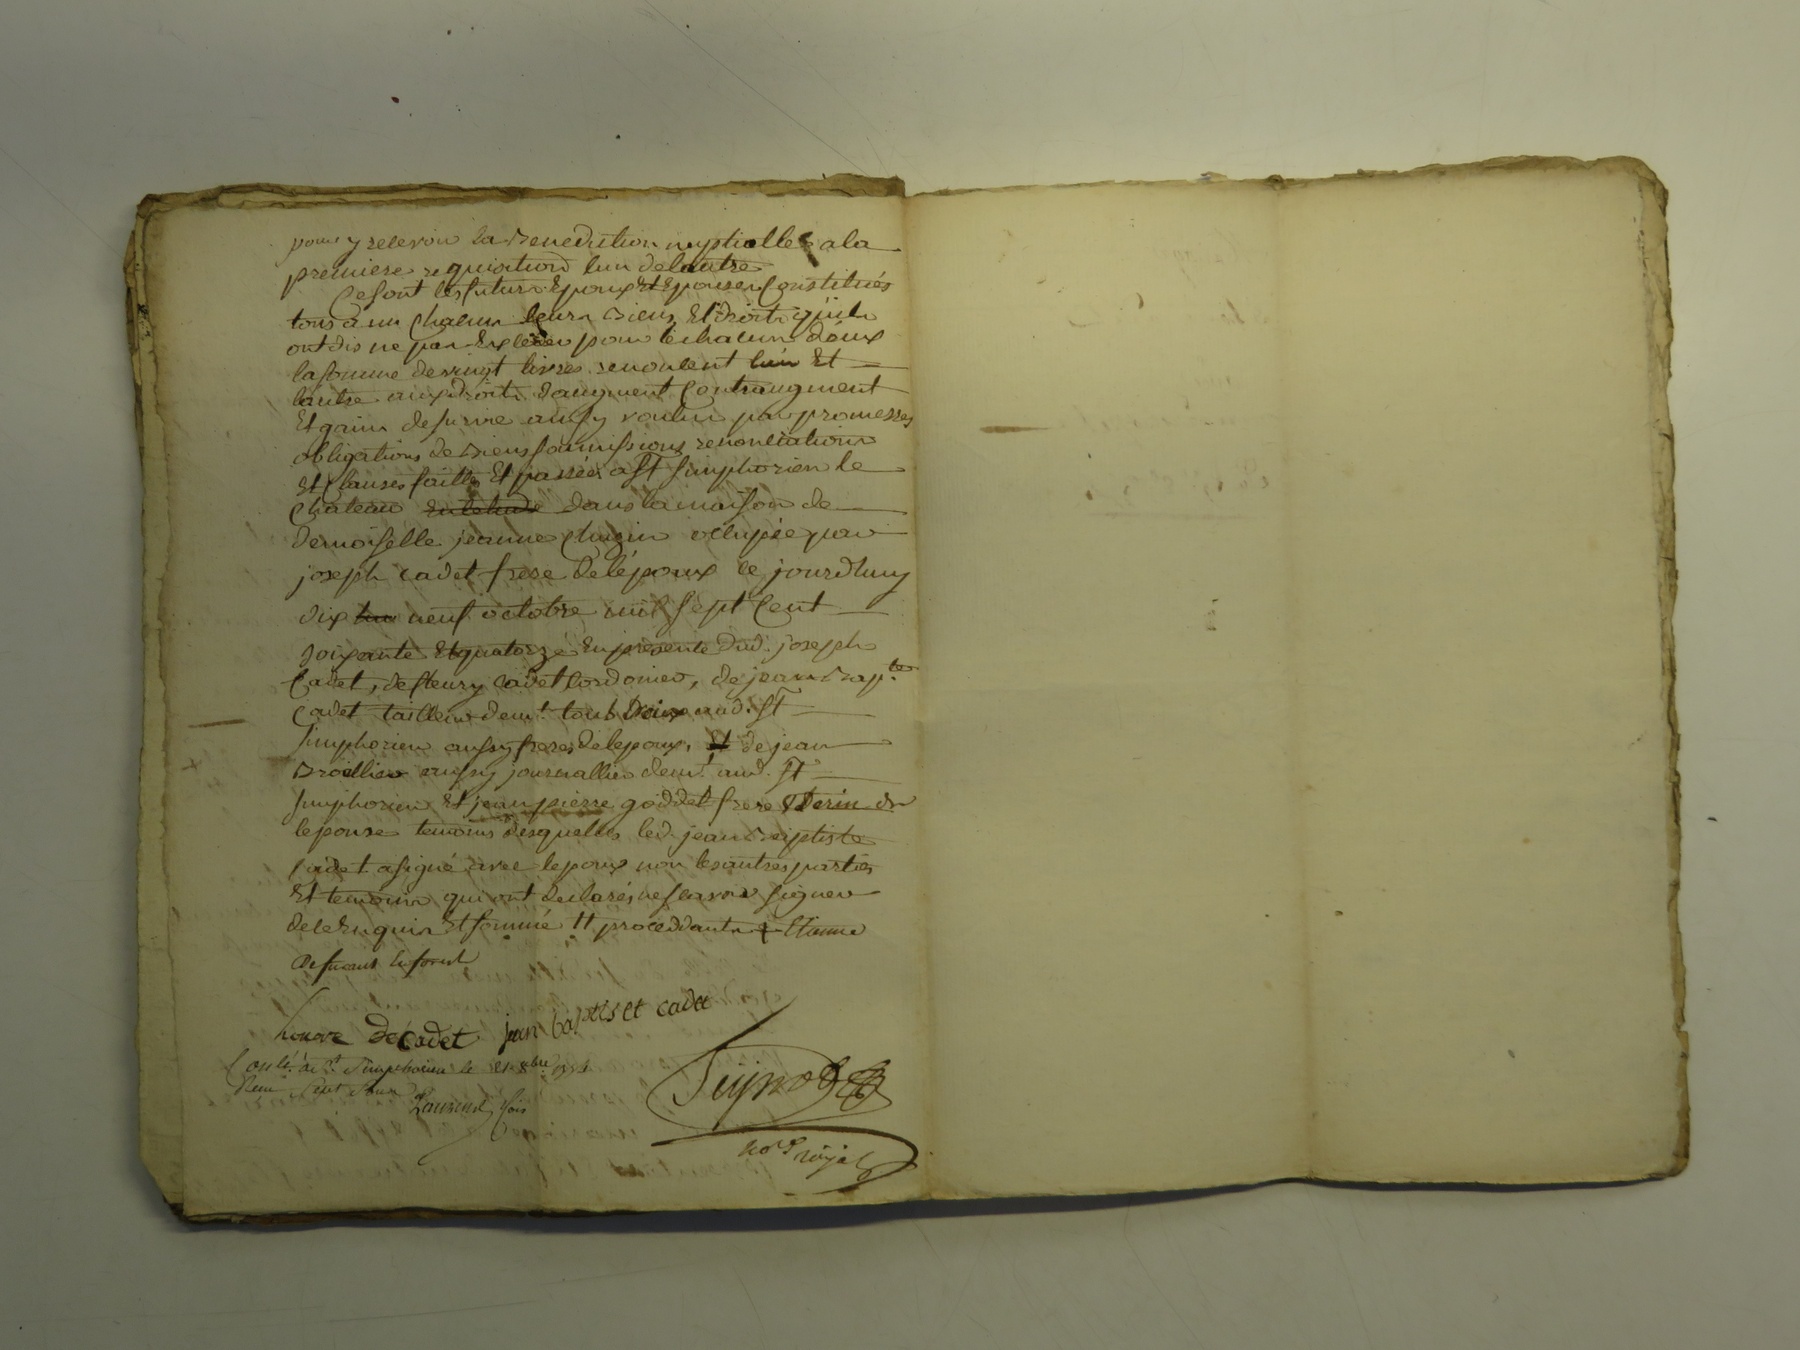 pour y recevoir la Benediction nuptialle a la
premiere requisition lun de lautre
Ce font les futurs Epoux Et Epouse Constitués
tous a un chacun leurs Biens Et droits quils
ont dis ne pas Exceder pour le chacun deux
la somme de vingt livres renoncent lun Et
lautre aux droits daugment Contraugment
Et gain de survie ainsy voulu par promesses
obligations de Biens soumissions renonciations
Et Clauses faittes Et passées a St simphorien le
Chateau dans la maison de
demoiselle jeanne occupée par
joseph Cadet frere de lépoux le jourdhuy
dix neuf octobre mil sept Cent
soixante Et quatorze En presente dud. joseph
Cadet, de fleury Cadet Cordonier, de jean Bap.te
Cadet tailleur dem.t tous aud. St
simphorien aussy freres de lepoux, de jean
aussy journallier dem.t aud. St
simphorien Et jean pierre goddet frere uterin de
lepouse temoins desquelles led. jean Baptiste
Cadet a signé avec lepoux non les autres parties
Et temoins qui ont declarés ne scavoir signer
de ce Enquis Et sommé tt proceddant Etienne
cadet jean baptiset cadet
Con.lé à S.t Simphorien le 21 8bre 1774
Reçu Sept Sous
no.re royal